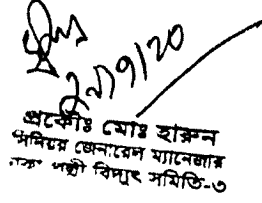 ২১/৭/২০
প্রকৌঃ মোঃ হারুন
সিনিয়র জেনারেল ম্যানেজার
পল্লী বিদ্যুৎ সমিতি-৩